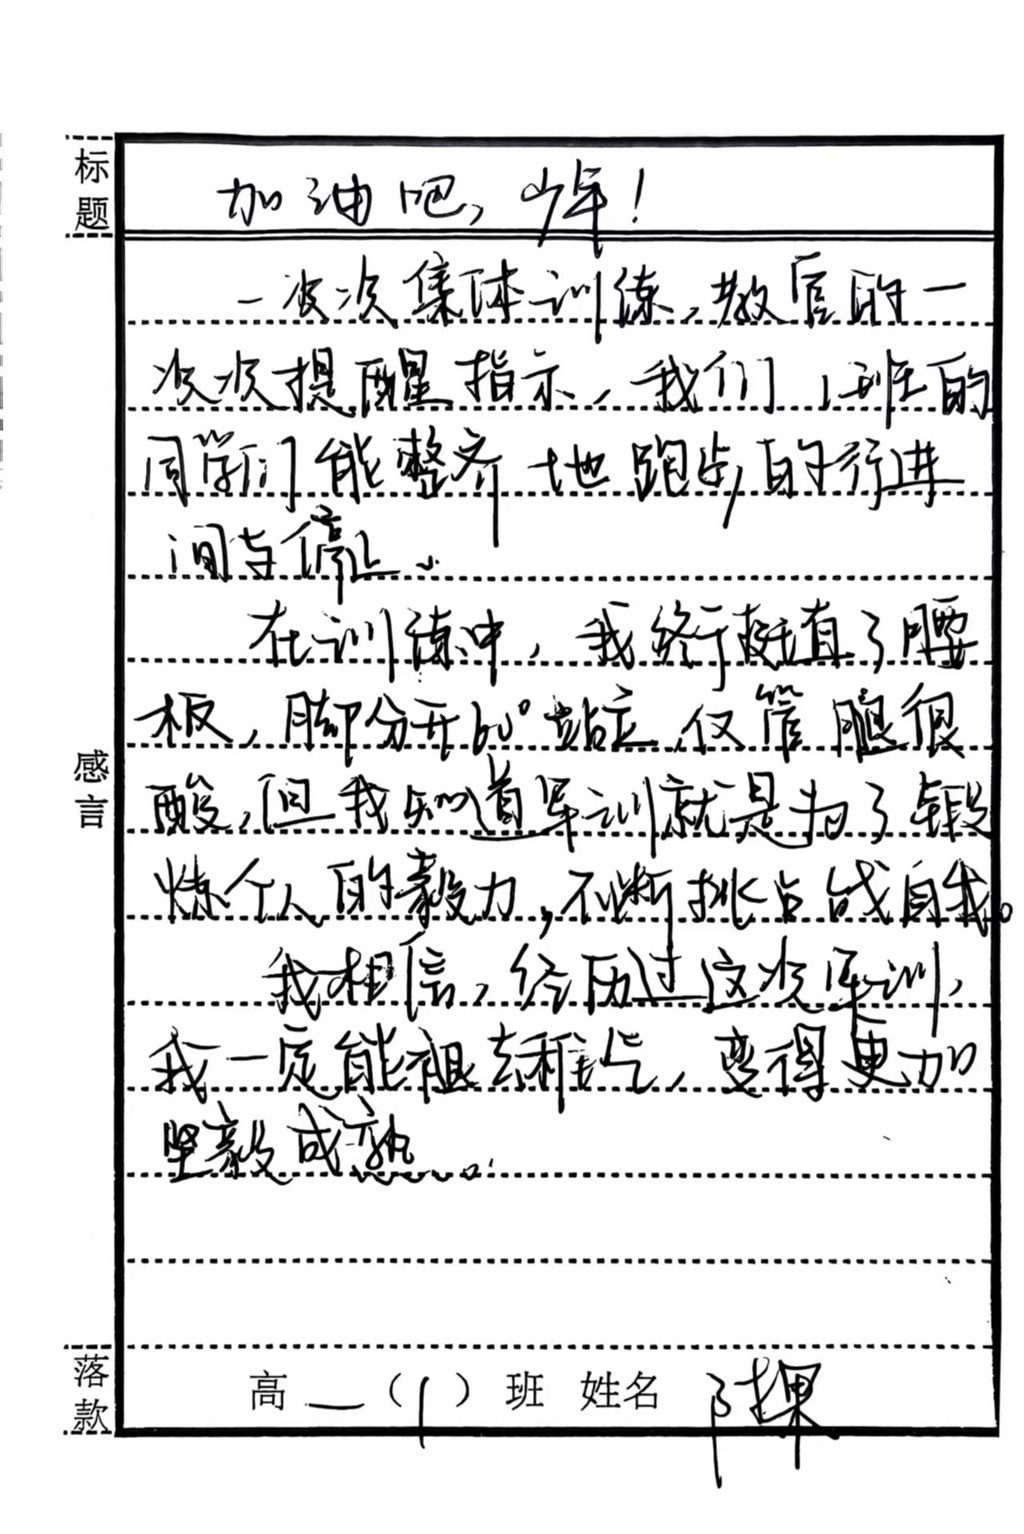 标题
加油吧，少年！
一次次集体训练，教官的一
次次提醒指示，我们1班的
同学们能整齐地跑步的行进
间与停止。
在训练中，我终于挺直了腰
板，脚分开60°站立，仅管腿很
感言
酸，但我知道军训就是为了锻
炼个人的毅力，不断挑战自我。
我相信，经历过这次军训，
我一定能褪去稚气，变得更加
坚毅成熟。
落款
高一（1）班 姓名